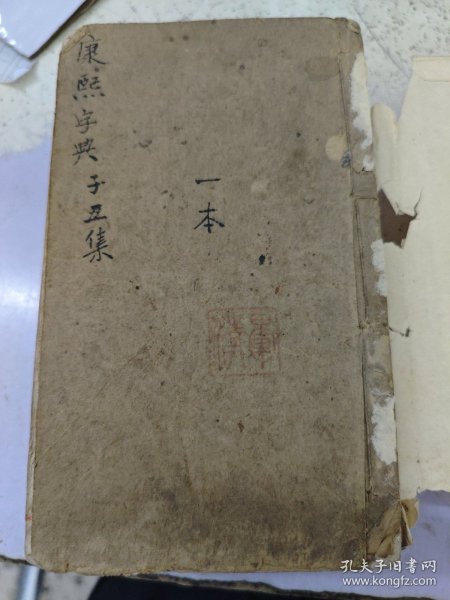 康熙字典子丑集
一本
孔夫子旧书网
www.kongfz.com